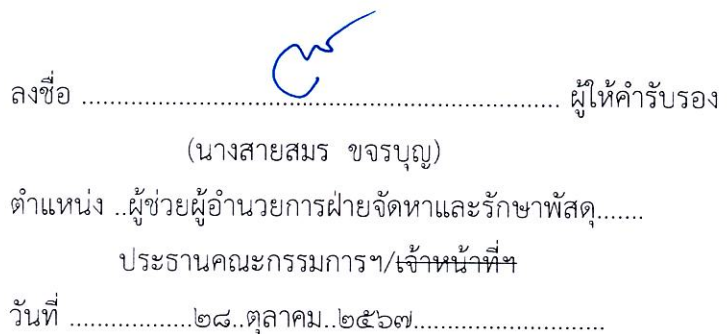 ลงชื่อ .................................................................... ผู้ให้คำรับรอง
(นางสายสมร ขจรบุญ)
ตำแหน่ง ..ผู้ช่วยผู้อำนวยการฝ่ายจัดหาและรักษาพัสดุ.......
ประธานคณะกรรมการฯ/เจ้าหน้าที่ฯ
วันที่ ..................๒๘..ตุลาคม..๒๕๖๗............................